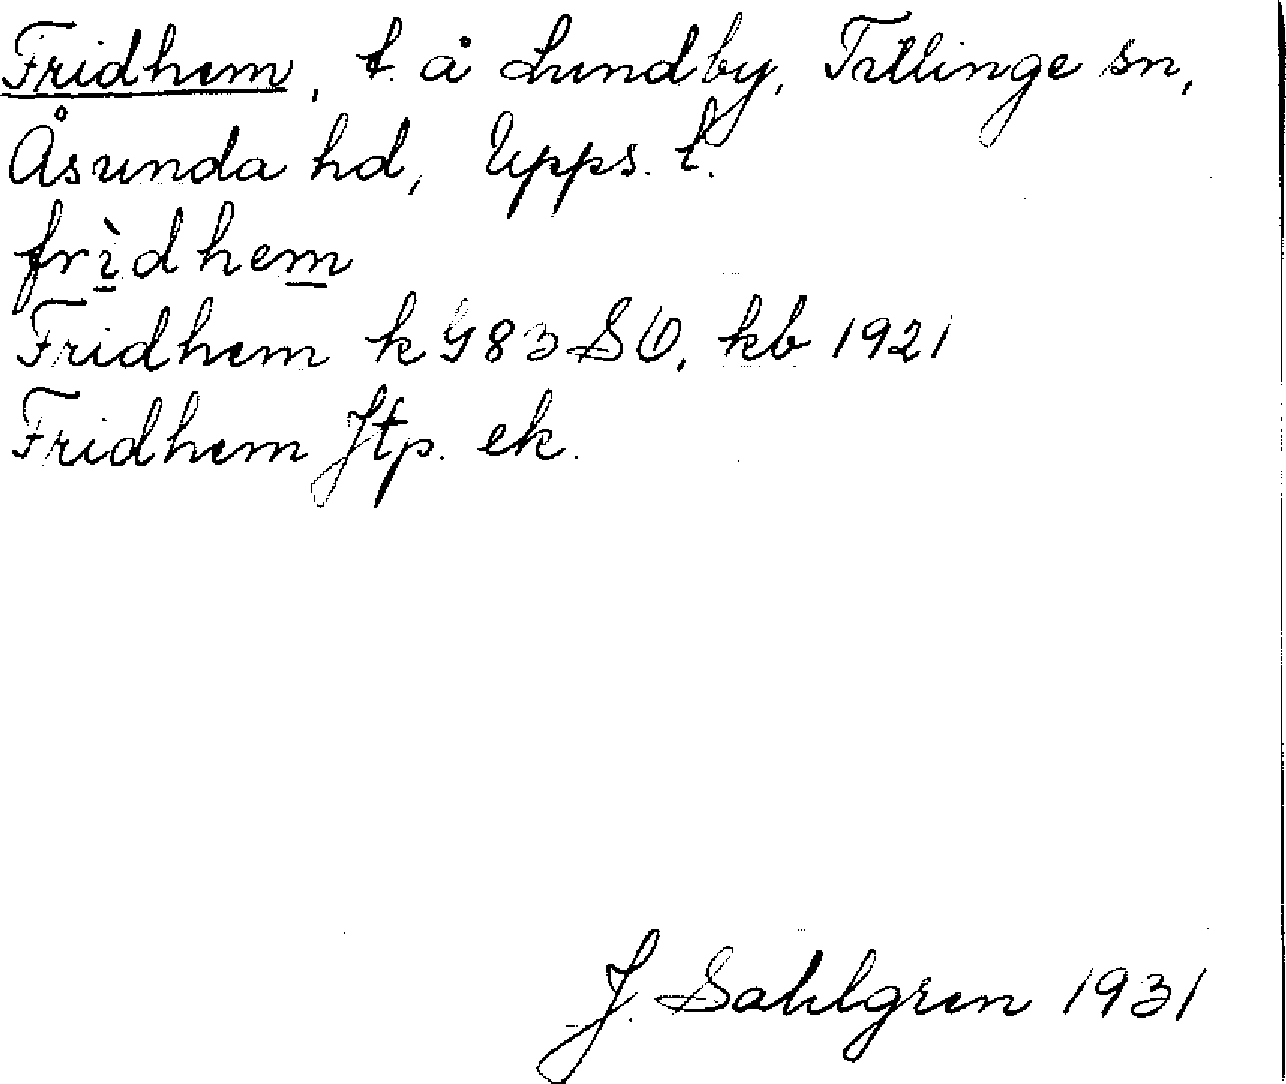 Fridhem, t. å Lundby, Tillinge sn,
Åsunda hd, Upps. l.
frìdhem
Fridhem k G83 SO, kb 1921
Fridhem Jtp. ek.
J. Sahlgren 1931